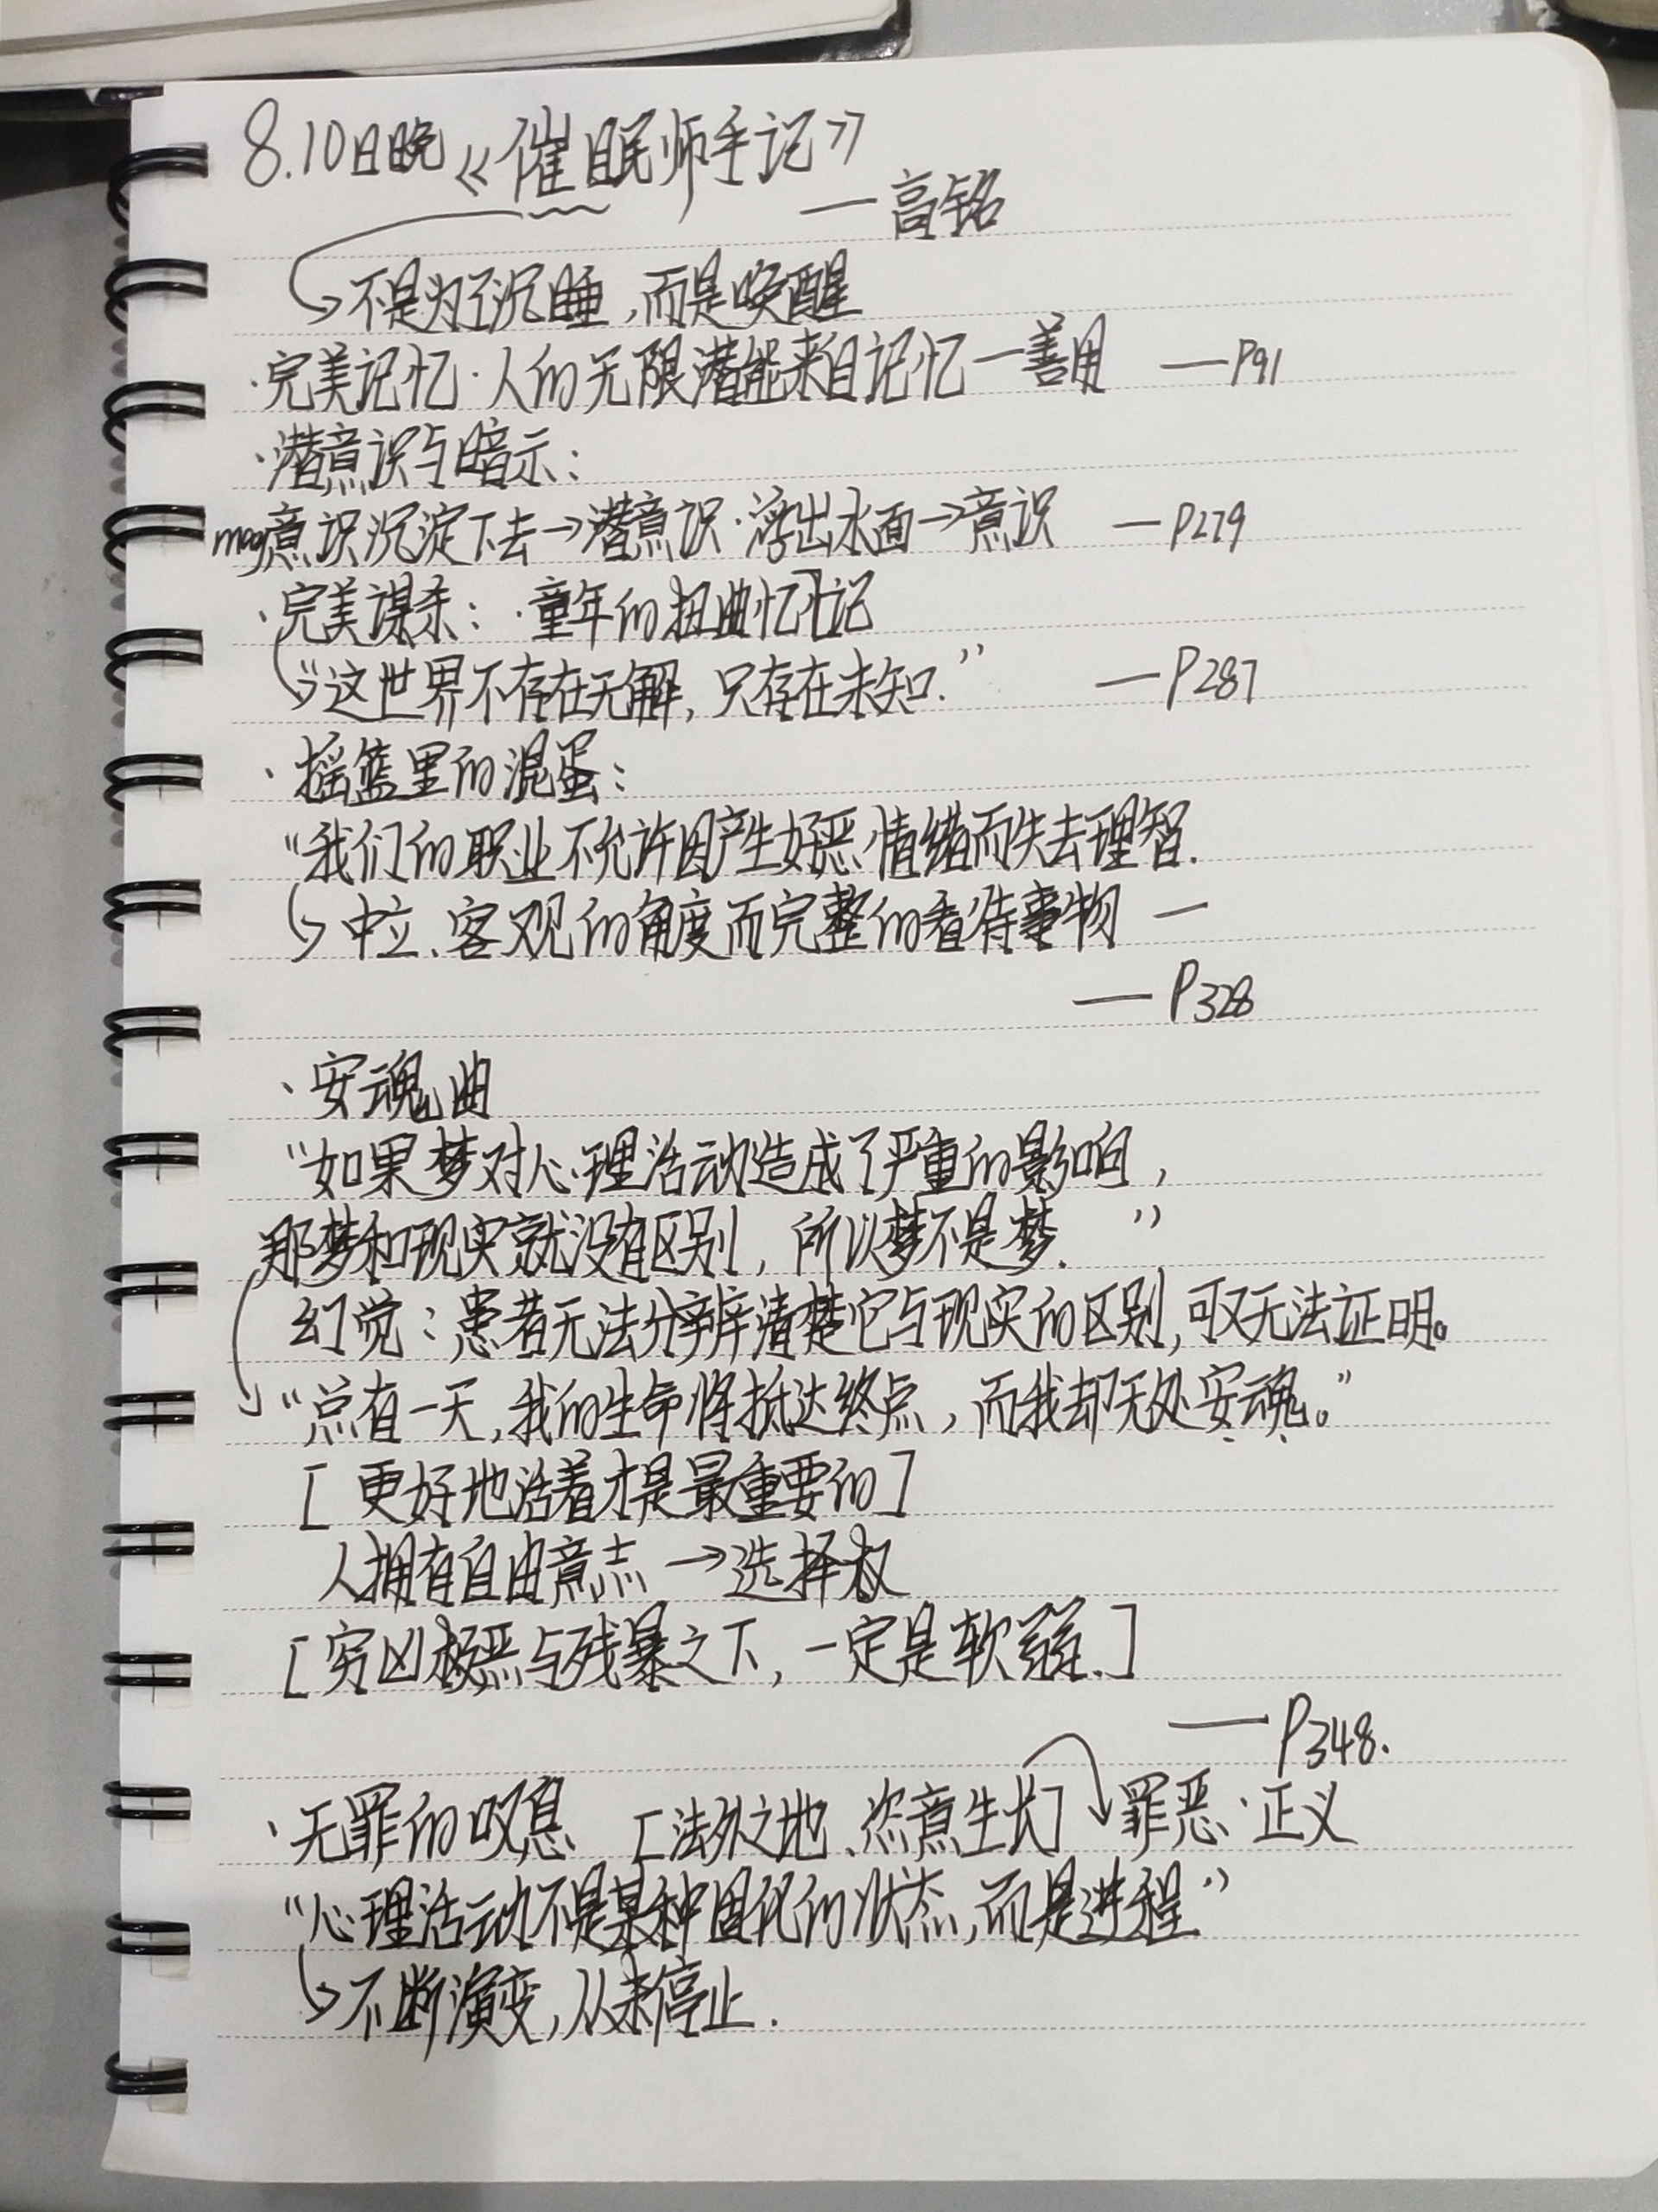 8.10日晚《催眠师手记》
——高铭
不是为了沉睡,而是唤醒
·完美记忆·人的无限潜能来自记忆—善用 ——P91
·潜意识与暗示:
意识沉淀下去→潜意识·浮出水面→意识 —P279
·完美谋杀:·童年的扭曲忆记
“这世界不存在无解,只存在未知.” ——P287
·摇篮里的混蛋:
“我们的职业不允许因产生好恶情绪而失去理智.
中立、客观的角度而完整的看待事物—
——P328
·安魂曲
“如果梦对心理活动造成了严重的影响,
那梦和现实就没有区别,所以梦不是梦.”
幻觉:患者无法分辨清楚它与现实的区别,可又无法证明。
“总有一天,我的生命将抵达终点,而我却无处安魂。”
[更好地活着才是最重要的]
人拥有自由意志→选择权
[穷凶极恶与残暴之下,一定是软弱.]
——P348.
·无罪的叹息 [法外之地、恣意生长] 罪恶·正义
“心理活动不是某种固化的状态,而是进程”
不断演变,从未停止.